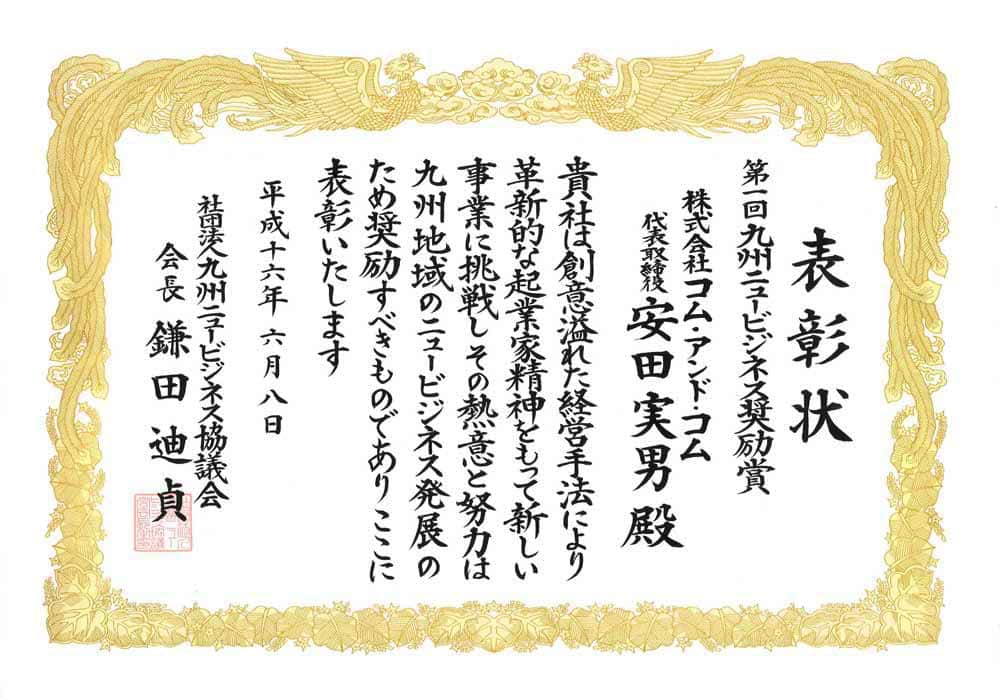 表彰状
第一回九州ニュービジネス奨励賞
株式会社コム・アンド・コム
代表取締役 安田実男殿
貴社は創意溢れた経営手法により
革新的な起業家精神をもって新しい
事業に挑戦しその熱意と努力は
九州地域のニュービジネス発展の
ため奨励すべきものでありここに
表彰いたします
平成十六年六月八日
社団法人九州ニュービジネス協議会
会長 鎌田迪貞